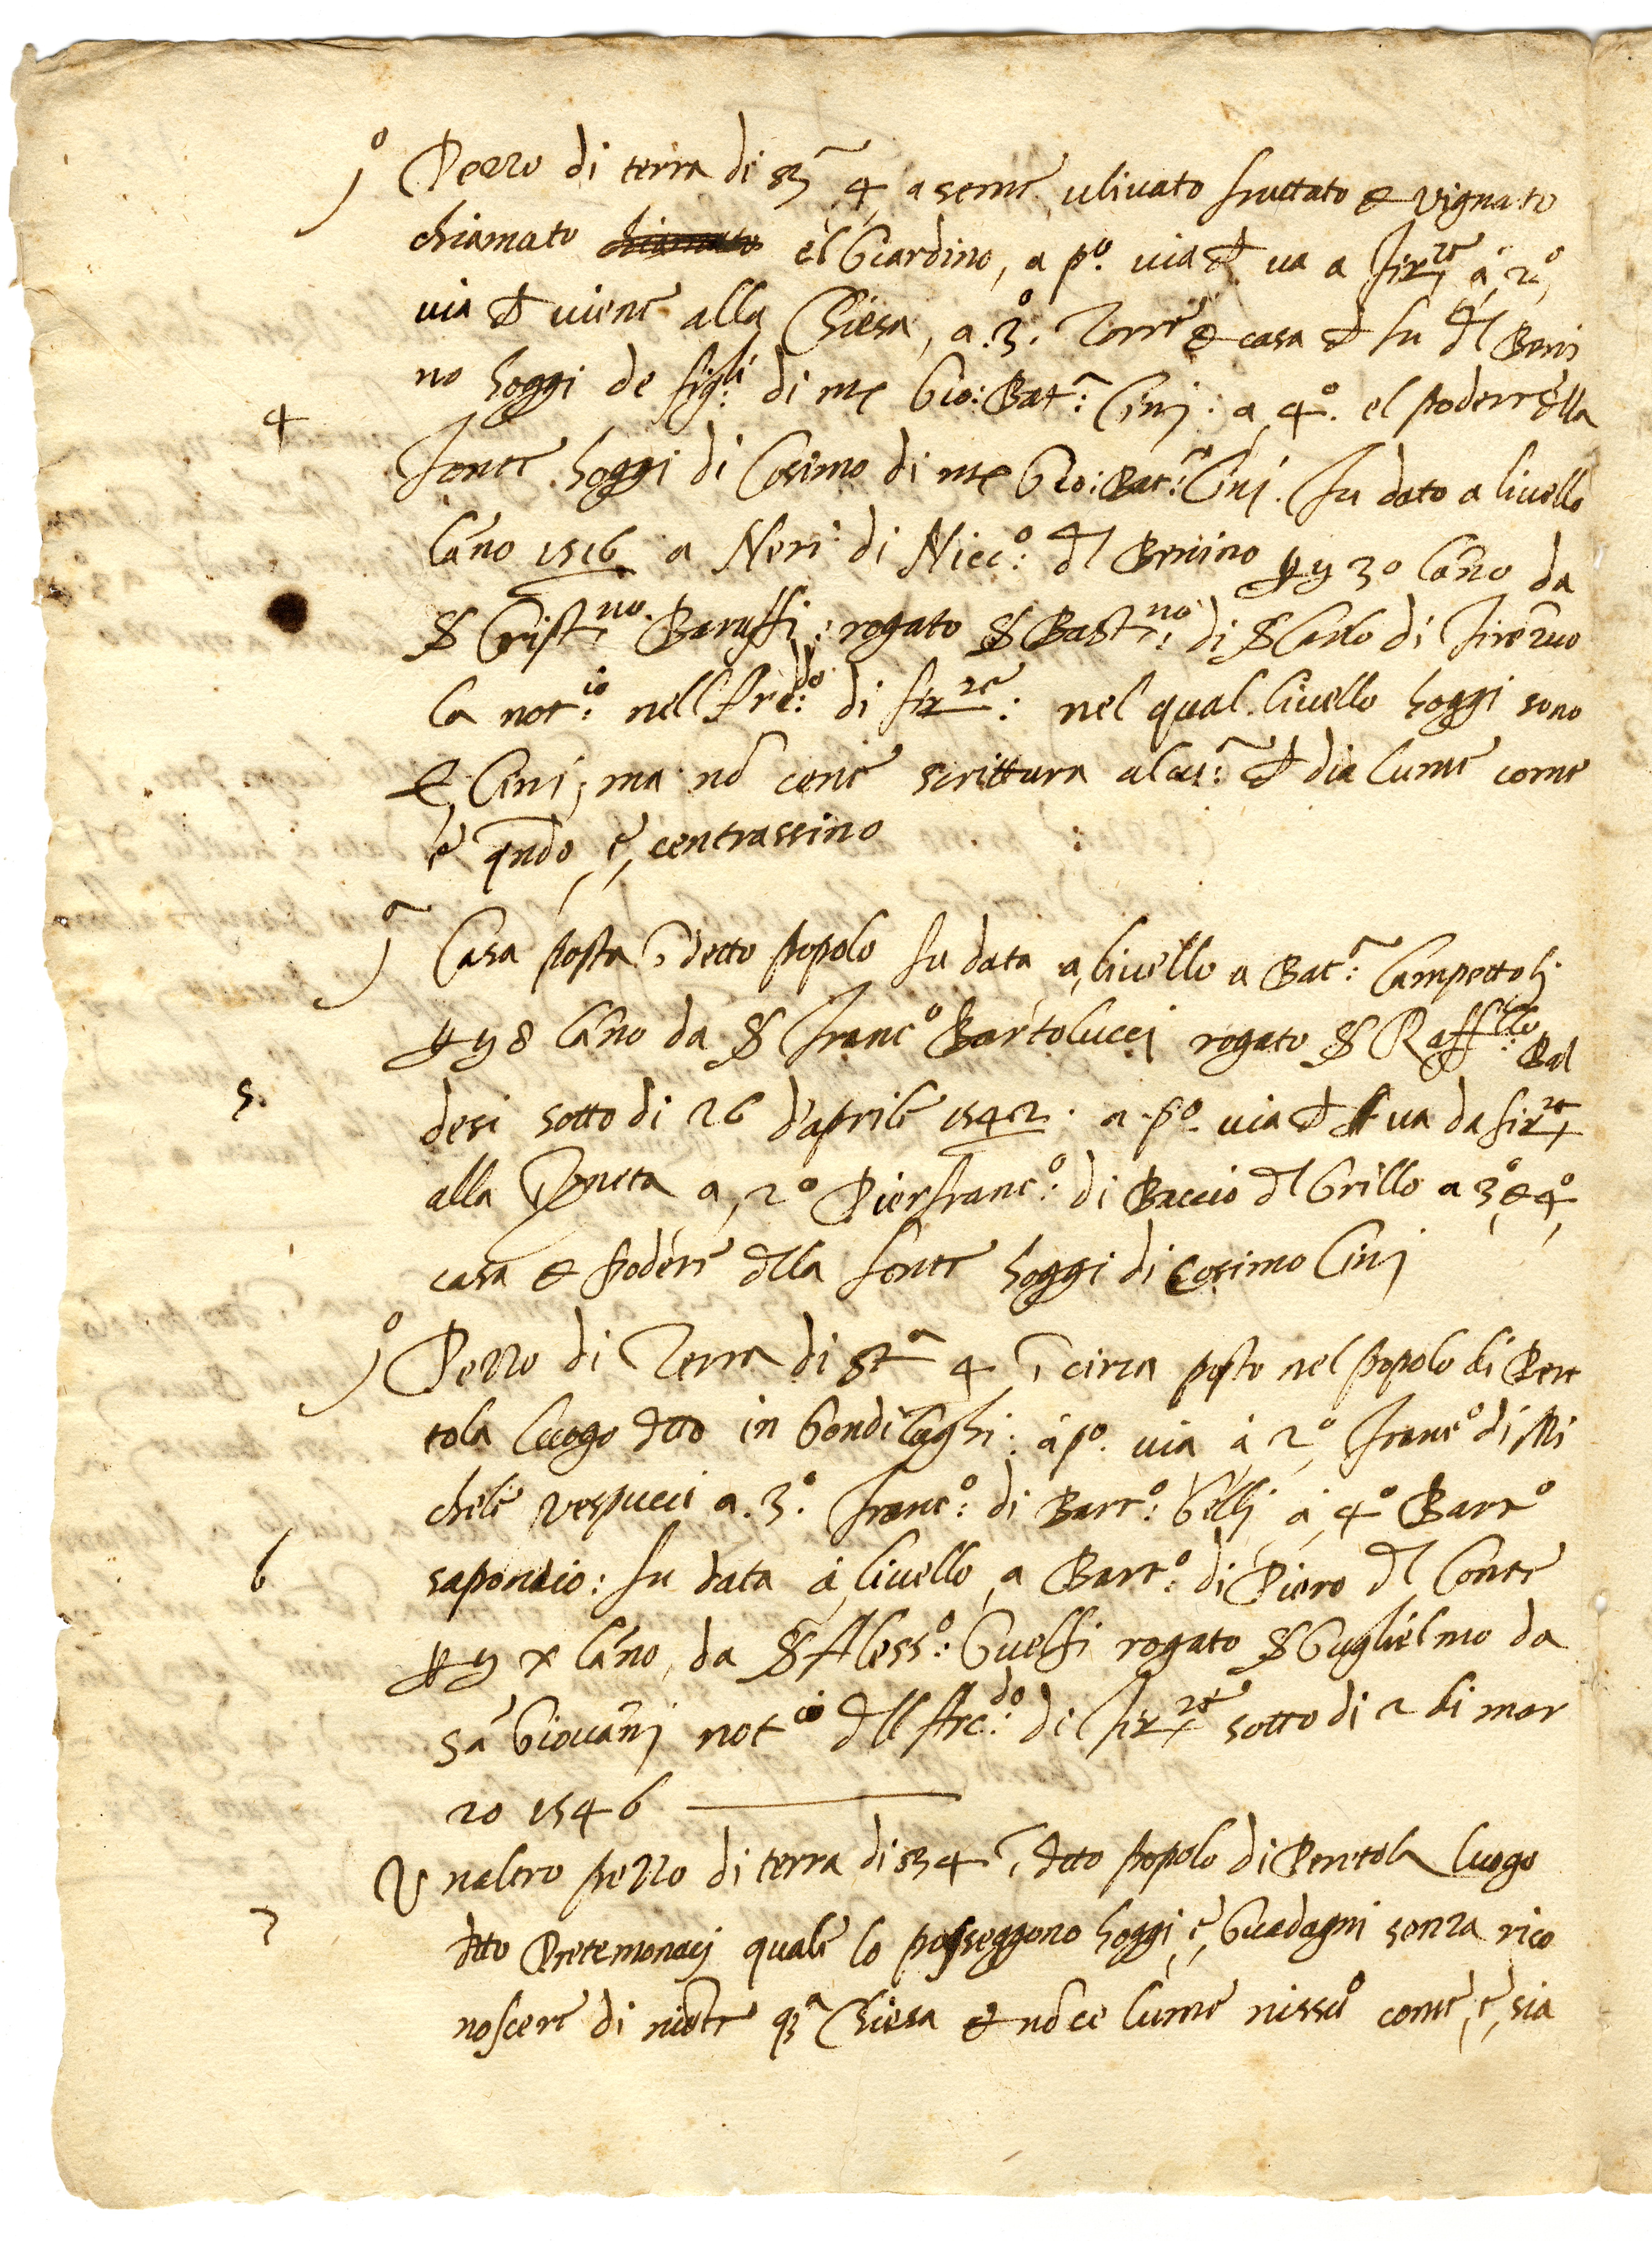 jº Pezzo di terra di st.ª 4 a seme, ulivato fruttato & vignato
chiamato chiamato el Giardino, a pº. via ch va a Firze à 2º,
via ch viene alla Chiesa, a .3º. Torre & casa ch fu dl Beni
no hoggi de figli: di mr Gio: Batª: Cinj: a 4º. el podere della
4
Fonte hoggi di Cosimo di mr Gio: Batª: Cinj. fu dato a livello
lano 1516 a Neri di Niccº: dl Benino 30 lano da
S Cristno. Baruffi: rogato S Bastno: di S Carlo di Firenzuo
la notio: nell Arcdo: di firze: nel qual livello hoggi sono
e, Cini, ma nō cene scrittura alcuª: ch dia lume come
e qndo e, centrassino
jª Casa posta ĩ detto popolo fu data a livello a Batª: Campettolj
8 lano da S Francº Bartolucci rogato S Raffllo: Bal
5.
desi sotto di 26 d'aprile 1542. a pº. via ch va da firze
alla Pineta a, 2º Pierfrancº: di Baccio dl Grillo a 3º, & 4º,
casa & podere dlla fonte hoggi di Cosimo Cinj
jº Pezzo di Terra di stª 4 ĩ circa posto nel popolo di Pere
tola luogo dtto in Gondilaghi: à pº. via à 2º, Francº di Mi
chele Vespucci a .3º. Francº: di Bartº: Gellj à 4º Bartº
6
saponaio: fu data à livello a Bartº: di Piero dl Conte
x lano, da S Alessº: Guelfi rogato S Guglielmo da
sã Giovãnj notio dll Arcdo: di Firze sotto di 2 di mar
zo 1546
Unaltro pezzo di terra di st 4 ĩ dtto popolo di Peretola luogo
7
dtto Pretemonacj quale lo posseggono hoggi e, Guadagni senza rico
noscere di niẽte qª Chiesa & nō ce lume nissuº come, e, sia